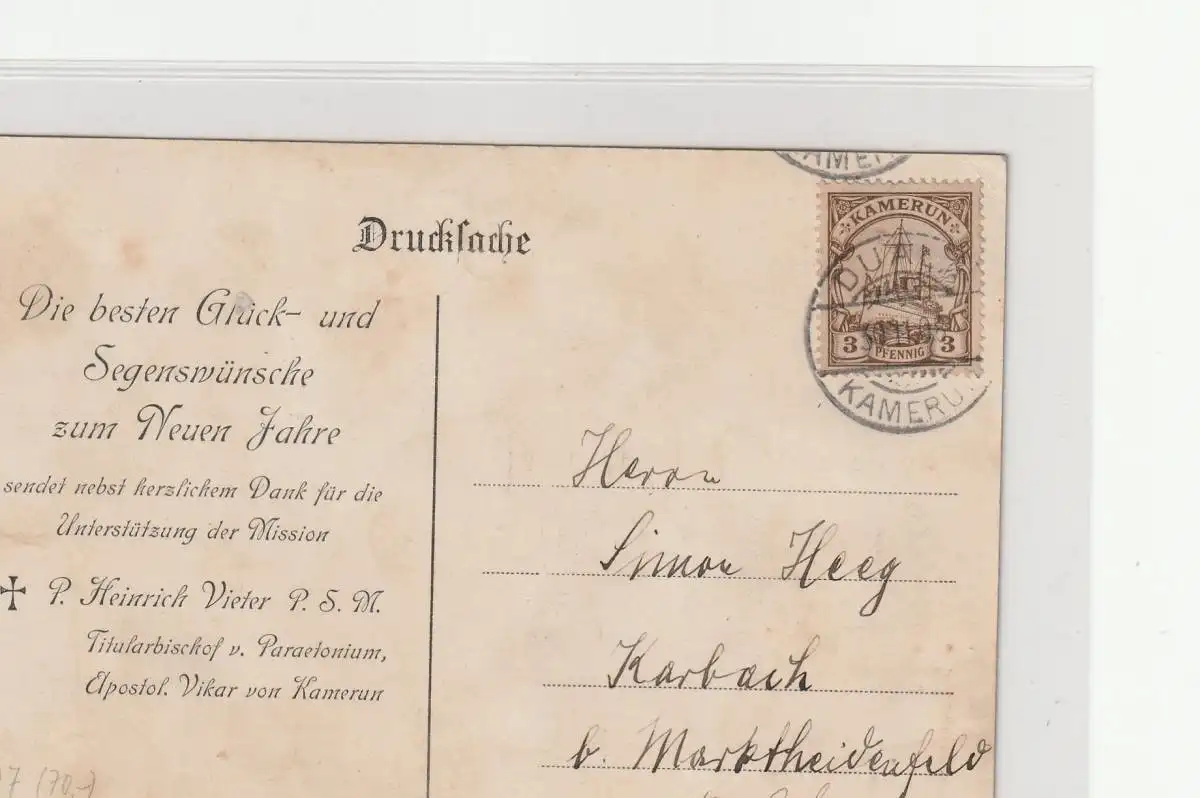 Drucksache
Die besten Glück- und
Segenswünsche
zum Neuen Jahre
sendet nebst herzlichem Dank für die
Unterstützung der Mission
P. Heinrich Vieter P. S. M.
Titularbischof v. Paraetonium,
Apostol. Vikar von Kamerun
KAMERUN
3 PFENNIG 3
DUA
KAMERU
Herrn
Simon Heeg
Karbach
b. Marktheidenfeld